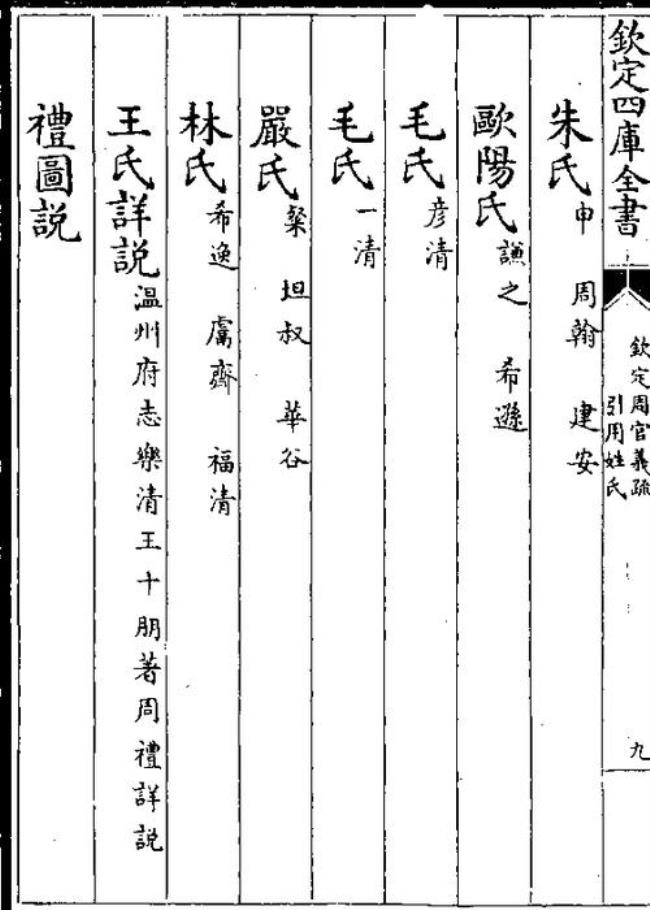 欽定四庫全書
欽定周官義疏
引用姓氏
九
朱氏 申 周翰 建安
歐陽氏 謙之 希遜
毛氏 彦清
毛氏 一清
嚴氏 粲 坦叔 華谷
林氏 希逸 鬳齋 福清
王氏詳説 温州府志樂清王十朋著周禮詳説
禮圖説